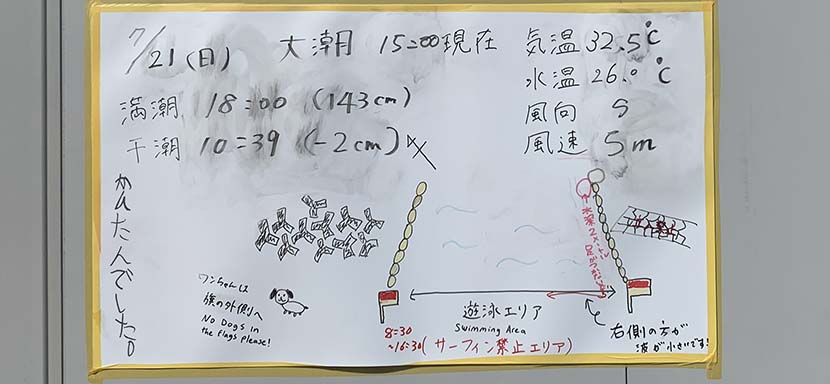 7/21(日) 大潮 15:00現在
満潮 18:00 (143cm)
干潮 10:39 (-2cm)
気温 32.5℃
水温 26.0℃
風向 S
風速 5m
かんたんでした。
ワンちゃんは
旗の外側へ
No Dogs in
the flags please!
水深2メートル
足がつかない
遊泳エリア
Swimming Area
8:30
~16:30(サーフィン禁止エリア)
右側の方が
波が小さいです!